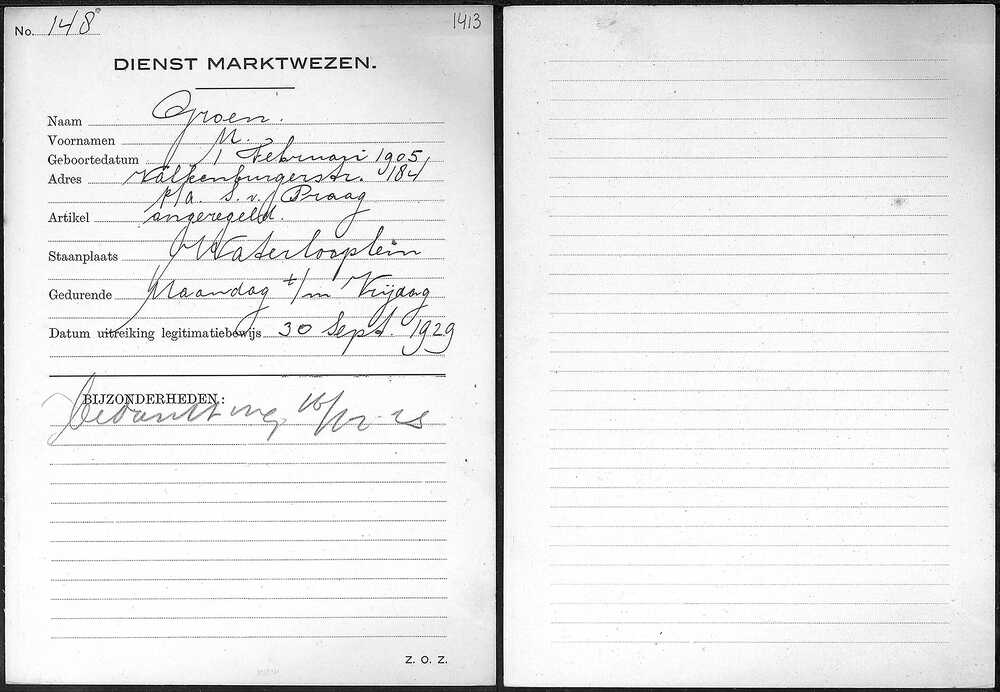 No. 148° 1413
DIENST MARKTWEZEN.
Naam Groen.
Voornamen M.
Geboortedatum 1 Februari 1905
Adres Valkenburgerstr. 184
p/a. S. v. Praag
Artikel ongeregeld.
Staanplaats Waterlooplein
Gedurende Maandag t/m Vrijdag
Datum uitreiking legitimatiebewijs 30 Sept. 1929
BIJZONDERHEDEN:
Bedankt
Z. O. Z.